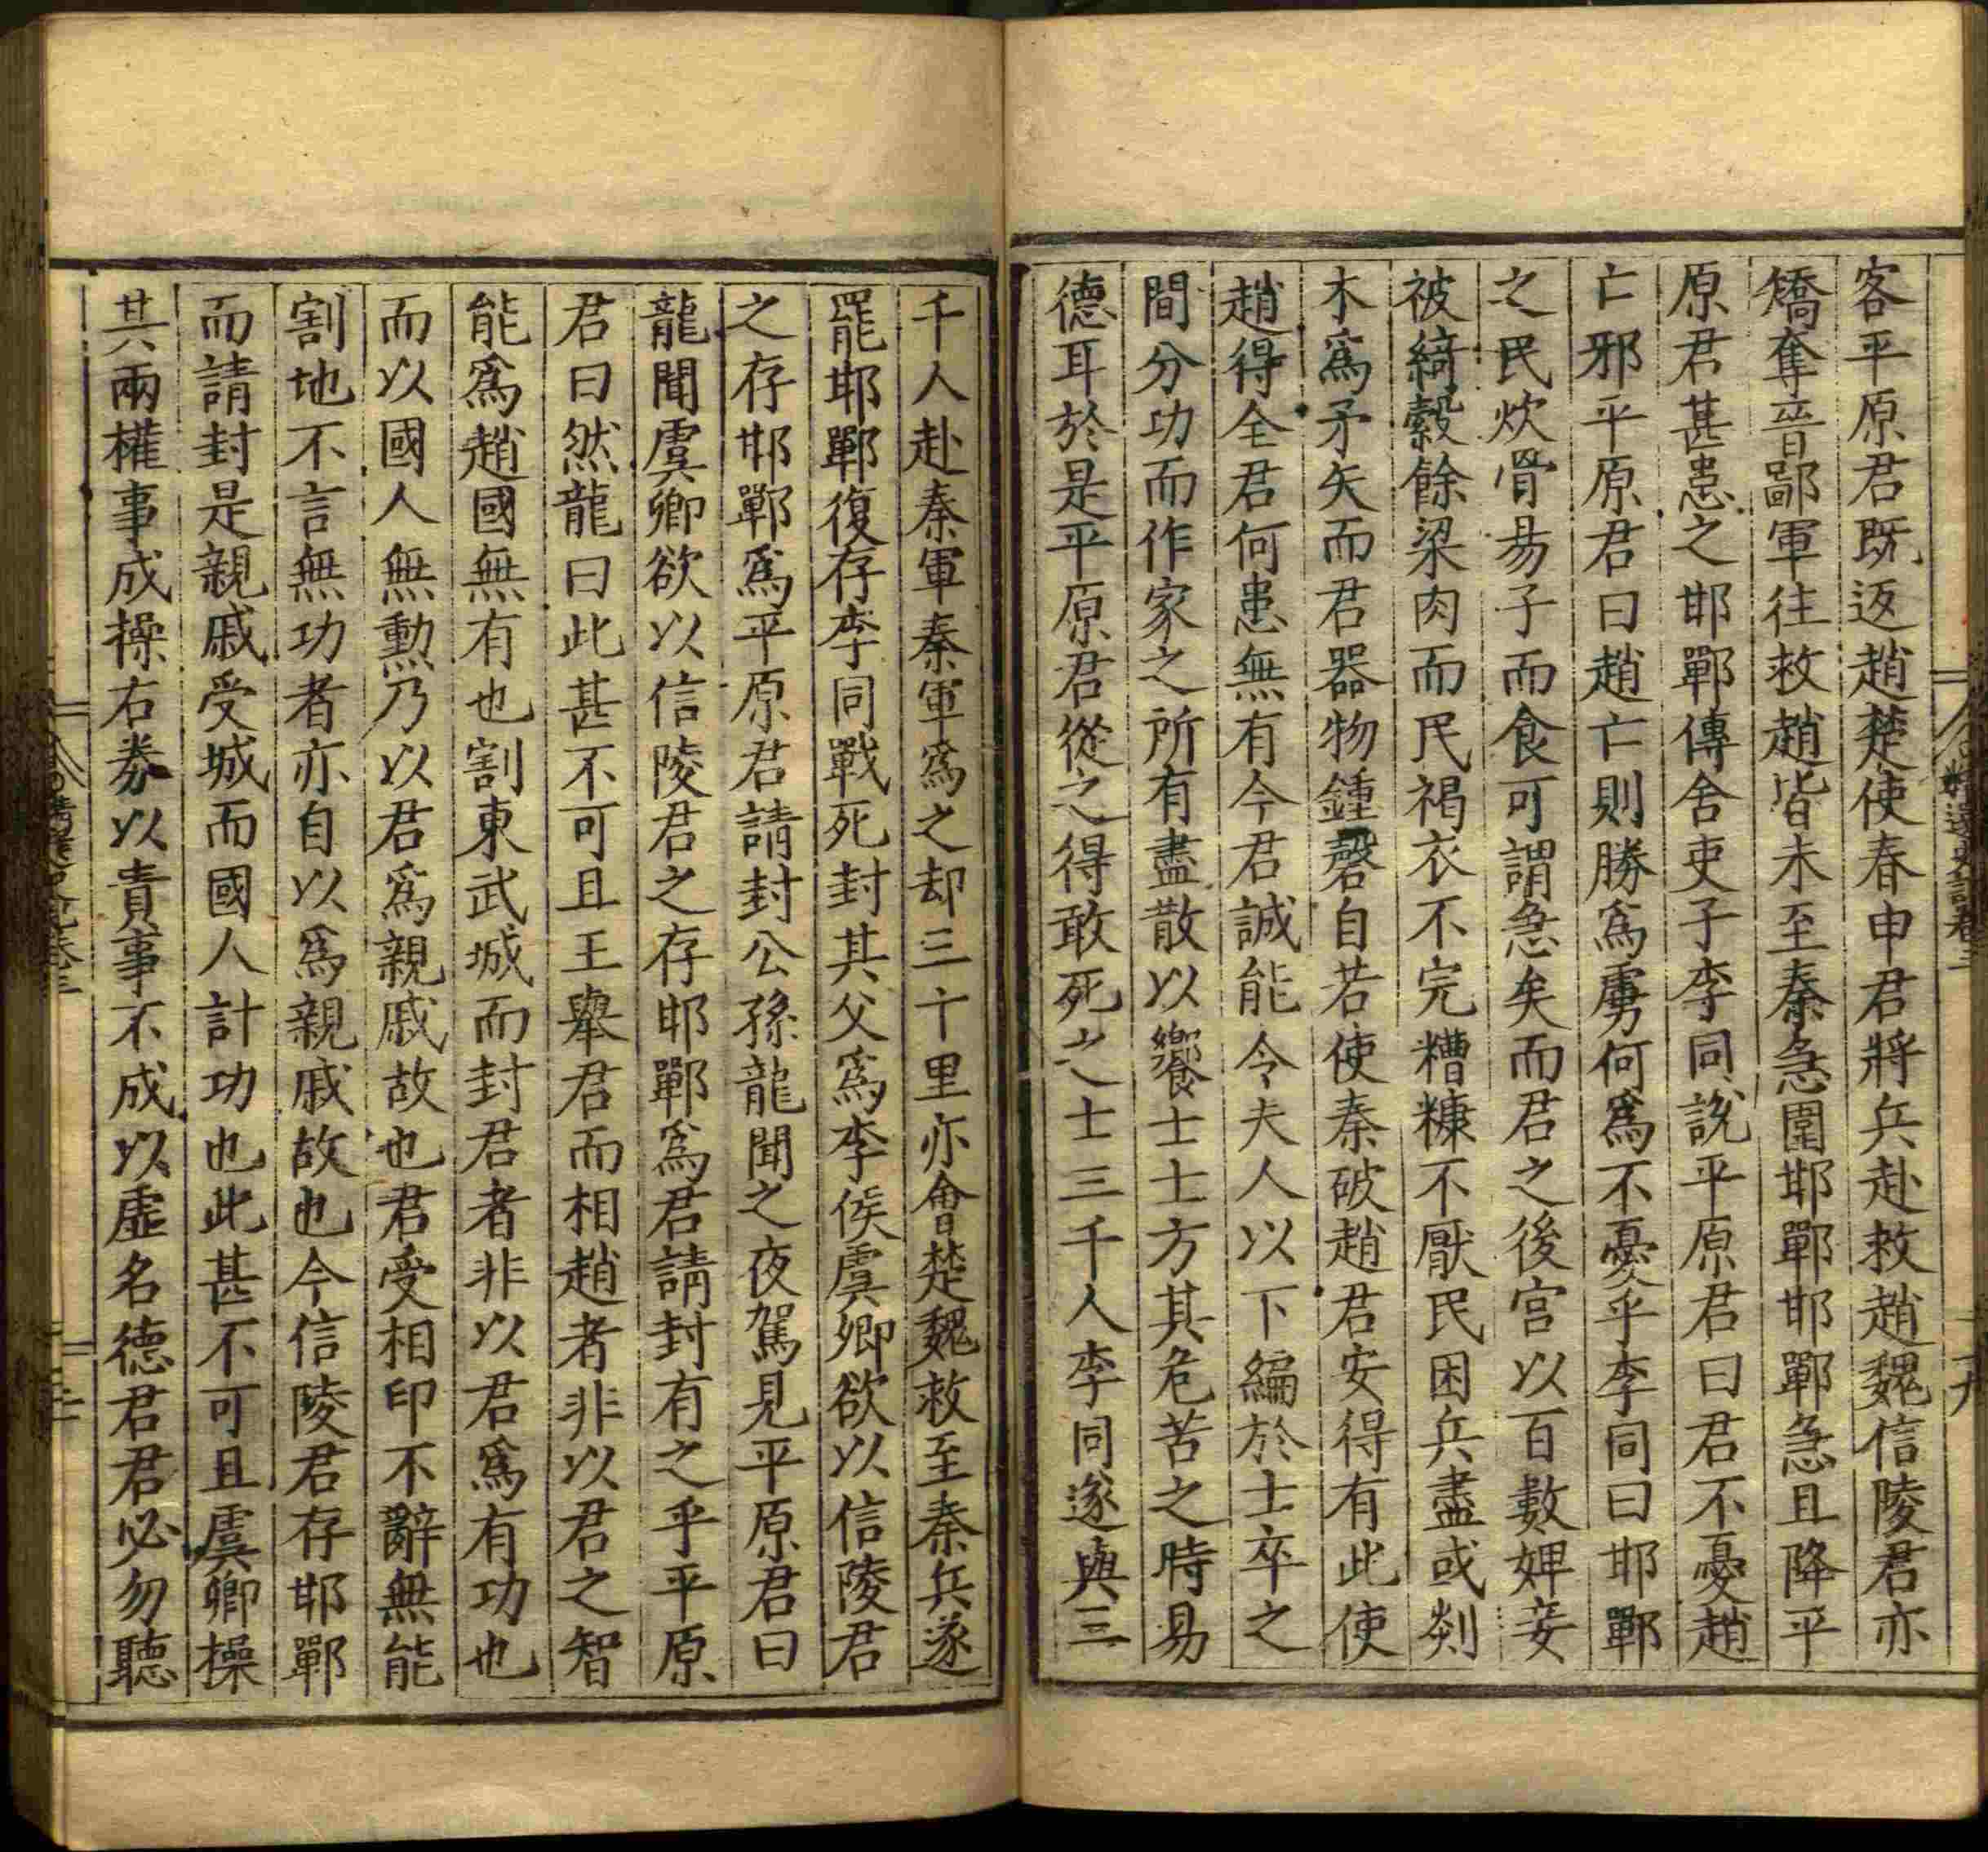 客平原君既返趙楚使春申君將兵赴救趙魏信陵君亦
矯奪晉鄙軍往救趙皆未至秦急圍邯鄲邯鄲急且降平
原君甚患之邯鄲傳舍吏子李同說平原君曰君不憂趙
亡邪平原君曰趙亡則勝爲虜何爲不憂乎李同曰邯鄲
之民炊骨易子而食可謂急矣而君之後宮以百數婢妾
被綺縠餘粱肉而民褐衣不完糟糠不厭民困兵盡或剡
木爲矛矢而君器物鍾磬自若使秦破趙君安得有此使
趙得全君何患無有今君誠能令夫人以下編於士卒之
間分功而作家之所有盡散以饗士士方其危苦之時易
德耳於是平原君從之得敢死之士三千人李同遂與三
千人赴秦軍秦軍爲之却三十里亦會楚魏救至秦兵遂
罷邯鄲復存李同戰死封其父爲李侯虞卿欲以信陵君
之存邯鄲爲平原君請封公孫龍聞之夜駕見平原君曰
龍聞虞卿欲以信陵君之存邯鄲爲君請封有之乎平原
君曰然龍曰此甚不可且王舉君而相趙者非以君之智
能爲趙國無有也割東武城而封君者非以君爲有功也
而以國人無勲乃以君爲親戚故也君受相印不辭無能
割地不言無功者亦自以爲親戚故也今信陵君存邯鄲
而請封是親戚受城而國人計功也此甚不可且虞卿操
其兩權事成操右券以責事不成以虛名德君君必勿聽